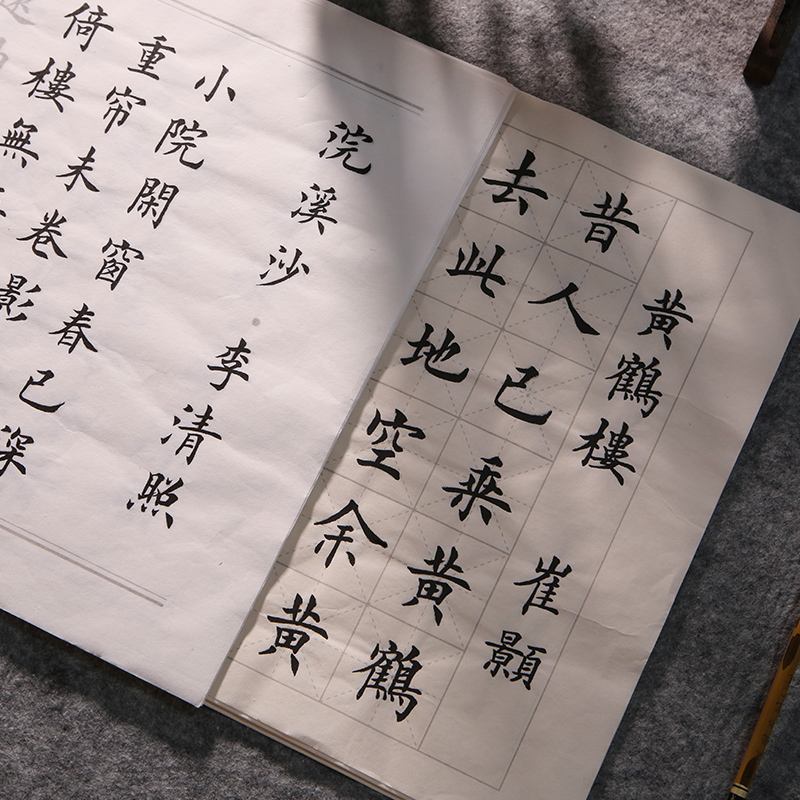 黄鶴樓 崔顥
昔人已乘黄鶴
去此地空余黄
浣溪沙·李清照
小院閑窗春已深
重帘未卷影
倚樓無